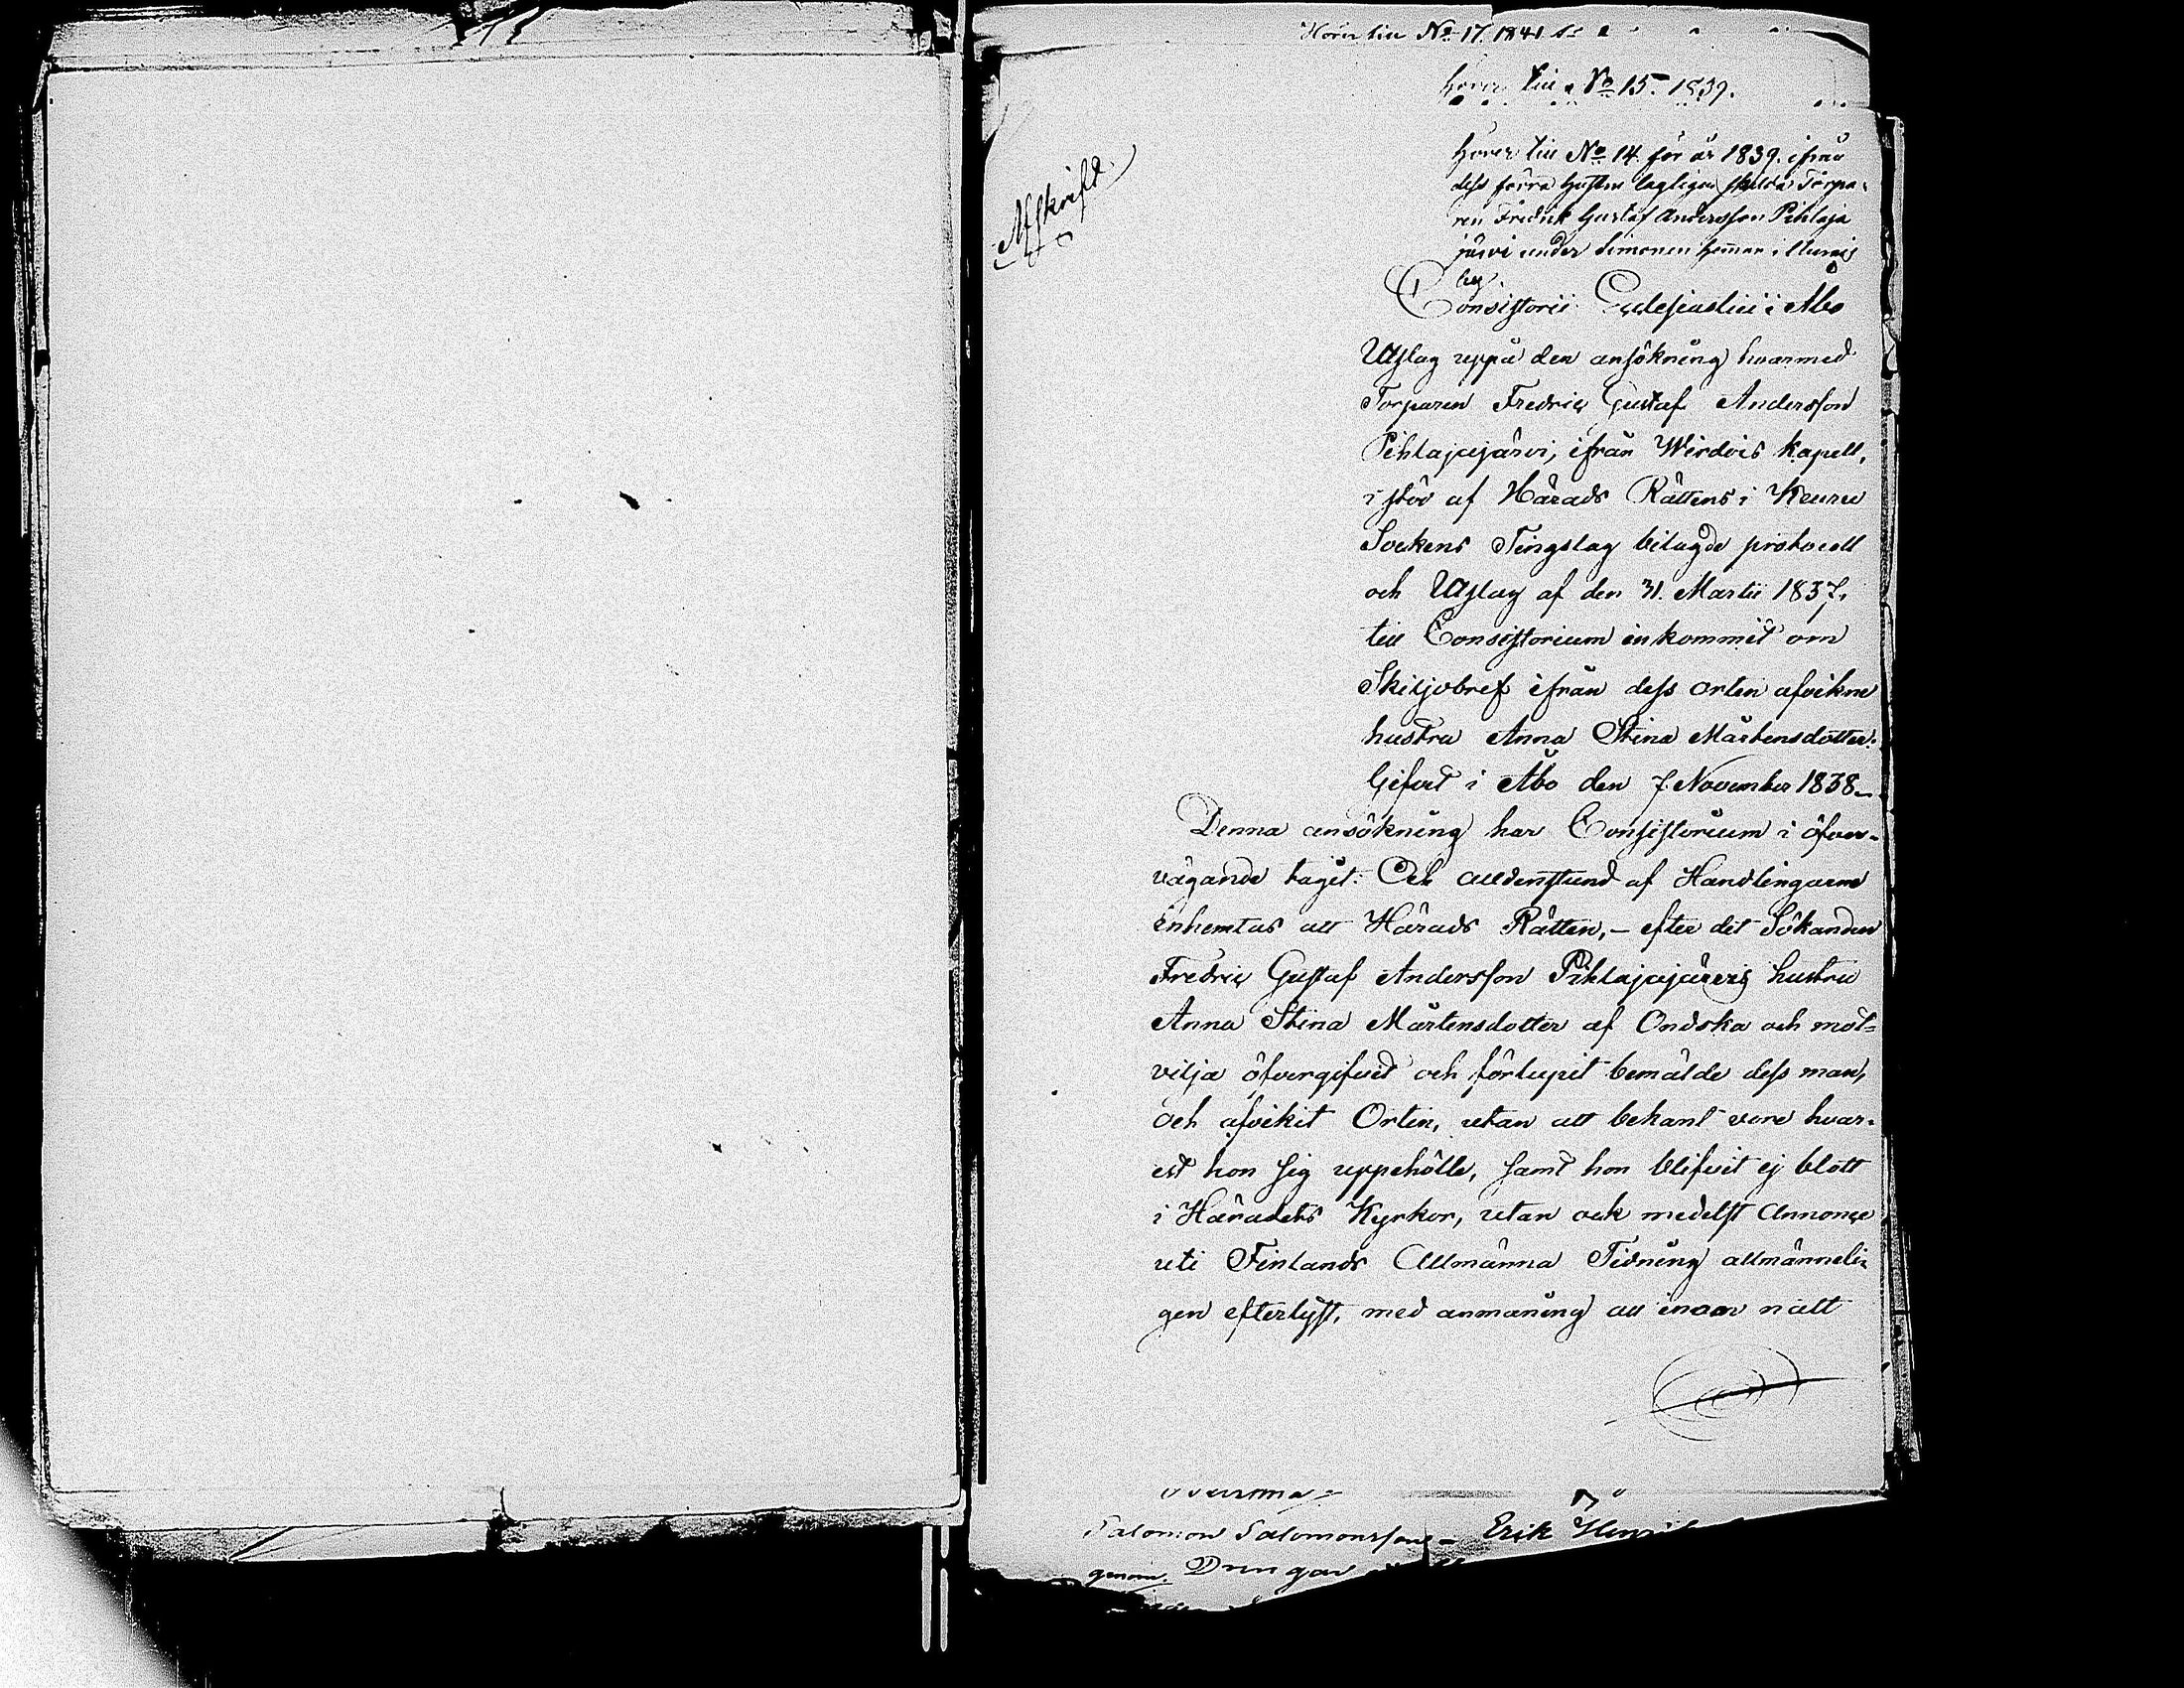 Hörer till No 17. 1841
hörer till No 15. 1839.
hörer till No 14. för år 1839. ifrån
dess förra hustru lagligen skilda Torpa-
ren Fredrik Gustaf Andersson Pihlaja
järvi under Simonen hemman i
by.
Afskrift.
Consistorii Ecclesiastici i Åbo
Utslag uppå den ansökning hvarmed
Torparen Fredric Gustaf Andersson
Pihlajajärvi, ifrån Wirdois kapell,
i stöd af Härads Rättens i Keuru
Sockens Tingslag bilagde protocoll
och Utslag af den 31. Martii 1837,
till Consistorium inkommit om
Skiljobref ifrån dess orten afvikne
hustru Anna Stina Mårtensdotter:
Gifvet i Åbo den 7. November 1838.
Denna ansökning har Consistorium i öfver-
vägande tagit: Och alldenstund af Handlingarne
inhemtas att Härads Rätten, – efter det Sökanden
Fredric Gustaf Andersson Pihlajajärvis hustru
Anna Stina Mårtensdotter af Ondska och mot-
vilja öfvergifvit och förlupit bemälde dess man,
och afvikit Orten, utan att bekant vore hvar-
est hon sig uppehölle, samt hon blifvit ej blott
i Häradets Kyrkor, utan ock medelst Annonce
uti Finlands Allmänna Tidning allmänneli-
gen efterlyst, med anmaning att innom natt
Salomon Salomonsson – Erik
genom. Drengar